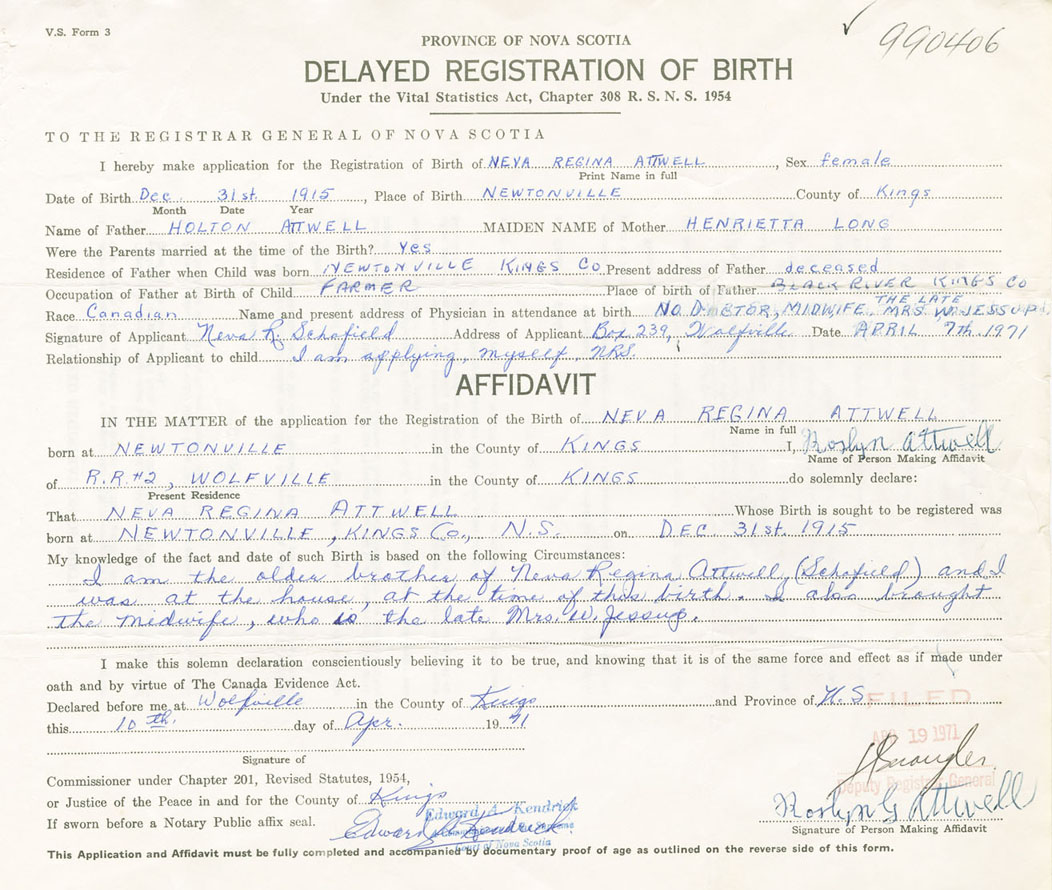 V.S. Form 3
990406
PROVINCE OF NOVA SCOTIA
DELAYED REGISTRATION OF BIRTH
Under the Vital Statistics Act, Chapter 308 R. S. N. S. 1954
TO THE REGISTRAR GENERAL OF NOVA SCOTIA
I hereby make application for the Registration of Birth of NEVA REGINA ATTWELL, Sex female
Print Name in full
Date of Birth Dec 31st. 1915, Place of Birth NEWTONVILLE County of Kings
Month Date Year
Name of Father HOLTON ATTWELL MAIDEN NAME of Mother HENRIETTA LONG
Were the Parents married at the time of the Birth? Yes
Residence of Father when Child was born NEWTONVILLE KINGS CO Present address of Father deceased
Occupation of Father at Birth of Child FARMER Place of birth of Father BLACK RIVER KINGS CO
Race Canadian Name and present address of Physician in attendance at birth NO DOCTOR, MIDWIFE, THE LATE MRS. W. JESSUP
Signature of Applicant Neva R. Schofield Address of Applicant Box 239, Wolfville Date APRIL 7th. 1971
Relationship of Applicant to child I am applying, myself, NRS.
AFFIDAVIT
IN THE MATTER of the application for the Registration of the Birth of NEVA REGINA ATTWELL
Name in full
born at NEWTONVILLE in the County of KINGS I, Roslyn Attwell
Name of Person Making Affidavit
of R.R #2, WOLFVILLE in the County of KINGS do solemnly declare:
Present Residence
That NEVA REGINA ATTWELL Whose Birth is sought to be registered was
born at NEWTONVILLE, KINGS Co., N.S. on DEC 31st. 1915
My knowledge of the fact and date of such Birth is based on the following Circumstances:
I am the older brother of Neva Regina Attwell, (Schofield) and I
was at the house, at the time of this birth. I also brought
the midwife, who is the late Mrs. W. Jessup.
I make this solemn declaration conscientiously believing it to be true, and knowing that it is of the same force and effect as if made under
oath and by virtue of The Canada Evidence Act.
Declared before me at Wolfville in the County of Kings and Province of N.S.
FILED
this 10th. day of Apr. 19 71
19 1971
Signature of
Commissioner under Chapter 201, Revised Statutes, 1954,
Deputy Registrar General
or Justice of the Peace in and for the County of Kings
Edward A. Kendrick
Roslyn G Attwell
If sworn before a Notary Public affix seal. Edward A. Kendrick
Signature of Person Making Affidavit
of Nova Scotia
This Application and Affidavit must be fully completed and accompanied by documentary proof of age as outlined on the reverse side of this form.